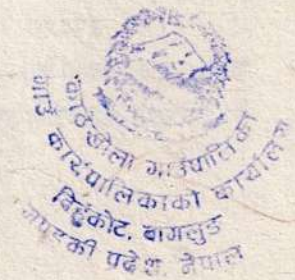 काठेखोला गाउँपालिका
गाउँ कार्यपालिकाको कार्यालय
विहुँकोट, बागलुङ
गण्डकी प्रदेश, नेपाल